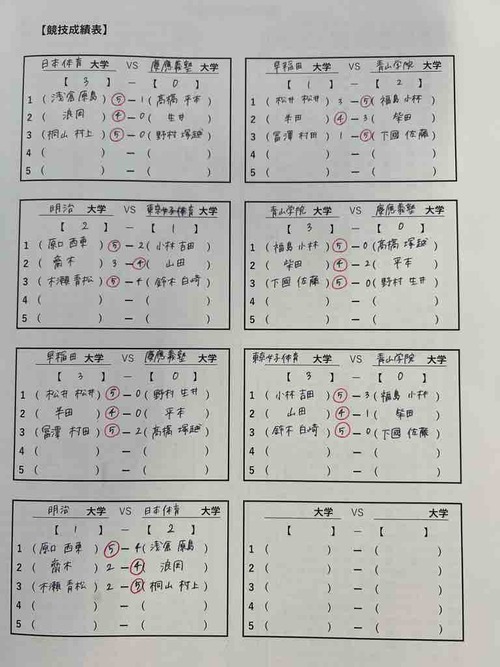 【競技成績表】
日本体育 大学 VS 慶應義塾 大学
【 3 】 － 【 0 】
1 ( 浅倉 原島 ) ⑤ － 1 ( 高橋 平本 )
2 ( 浪岡 ) ④ － 0 ( 生井 )
3 ( 桐山 村上 ) ⑤ － 0 ( 野村 塚越 )
4 ( ) － ( )
5 ( ) － ( )
早稲田 大学 VS 青山学院 大学
【 1 】 － 【 2 】
1 ( 松井 松井 ) 3 － ⑤ ( 福島 小林 )
2 ( 半田 ) ④ － 3 ( 柴田 )
3 ( 冨澤 村田 ) 1 － ⑤ ( 下國 佐藤 )
4 ( ) － ( )
5 ( ) － ( )
明治 大学 VS 東京女子体育 大学
【 2 】 － 【 1 】
1 ( 原口 西東 ) ⑤ － 2 ( 小林 吉田 )
2 ( 齋木 ) 3 － ④ ( 山田 )
3 ( 木瀬 青松 ) ⑤ － 4 ( 鈴木 白崎 )
4 ( ) － ( )
5 ( ) － ( )
青山学院 大学 VS 慶應義塾 大学
【 3 】 － 【 0 】
1 ( 福島 小林 ) ⑤ － 0 ( 高橋 塚越 )
2 ( 柴田 ) ④ － 2 ( 平本 )
3 ( 下國 佐藤 ) ⑤ － 0 ( 野村 生井 )
4 ( ) － ( )
5 ( ) － ( )
早稲田 大学 VS 慶應義塾 大学
【 3 】 － 【 0 】
1 ( 松井 松井 ) ⑤ － 0 ( 野村 生井 )
2 ( 半田 ) ④ － 0 ( 平本 )
3 ( 冨澤 村田 ) ⑤ － 2 ( 高橋 塚越 )
4 ( ) － ( )
5 ( ) － ( )
東京女子体育 大学 VS 青山学院 大学
【 3 】 － 【 0 】
1 ( 小林 吉田 ) ⑤ － 3 ( 福島 小林 )
2 ( 山田 ) ④ － 1 ( 柴田 )
3 ( 鈴木 白崎 ) ⑤ － 0 ( 下國 佐藤 )
4 ( ) － ( )
5 ( ) － ( )
明治 大学 VS 日本体育 大学
【 1 】 － 【 2 】
1 ( 原口 西東 ) ⑤ － 4 ( 浅倉 原島 )
2 ( 齋木 ) 2 － ④ ( 浪岡 )
3 ( 木瀬 青松 ) 2 － ⑤ ( 桐山 村上 )
4 ( ) － ( )
5 ( ) － ( )
大学 VS 大学
【 】 － 【 】
1 ( ) － ( )
2 ( ) － ( )
3 ( ) － ( )
4 ( ) － ( )
5 ( ) － ( )